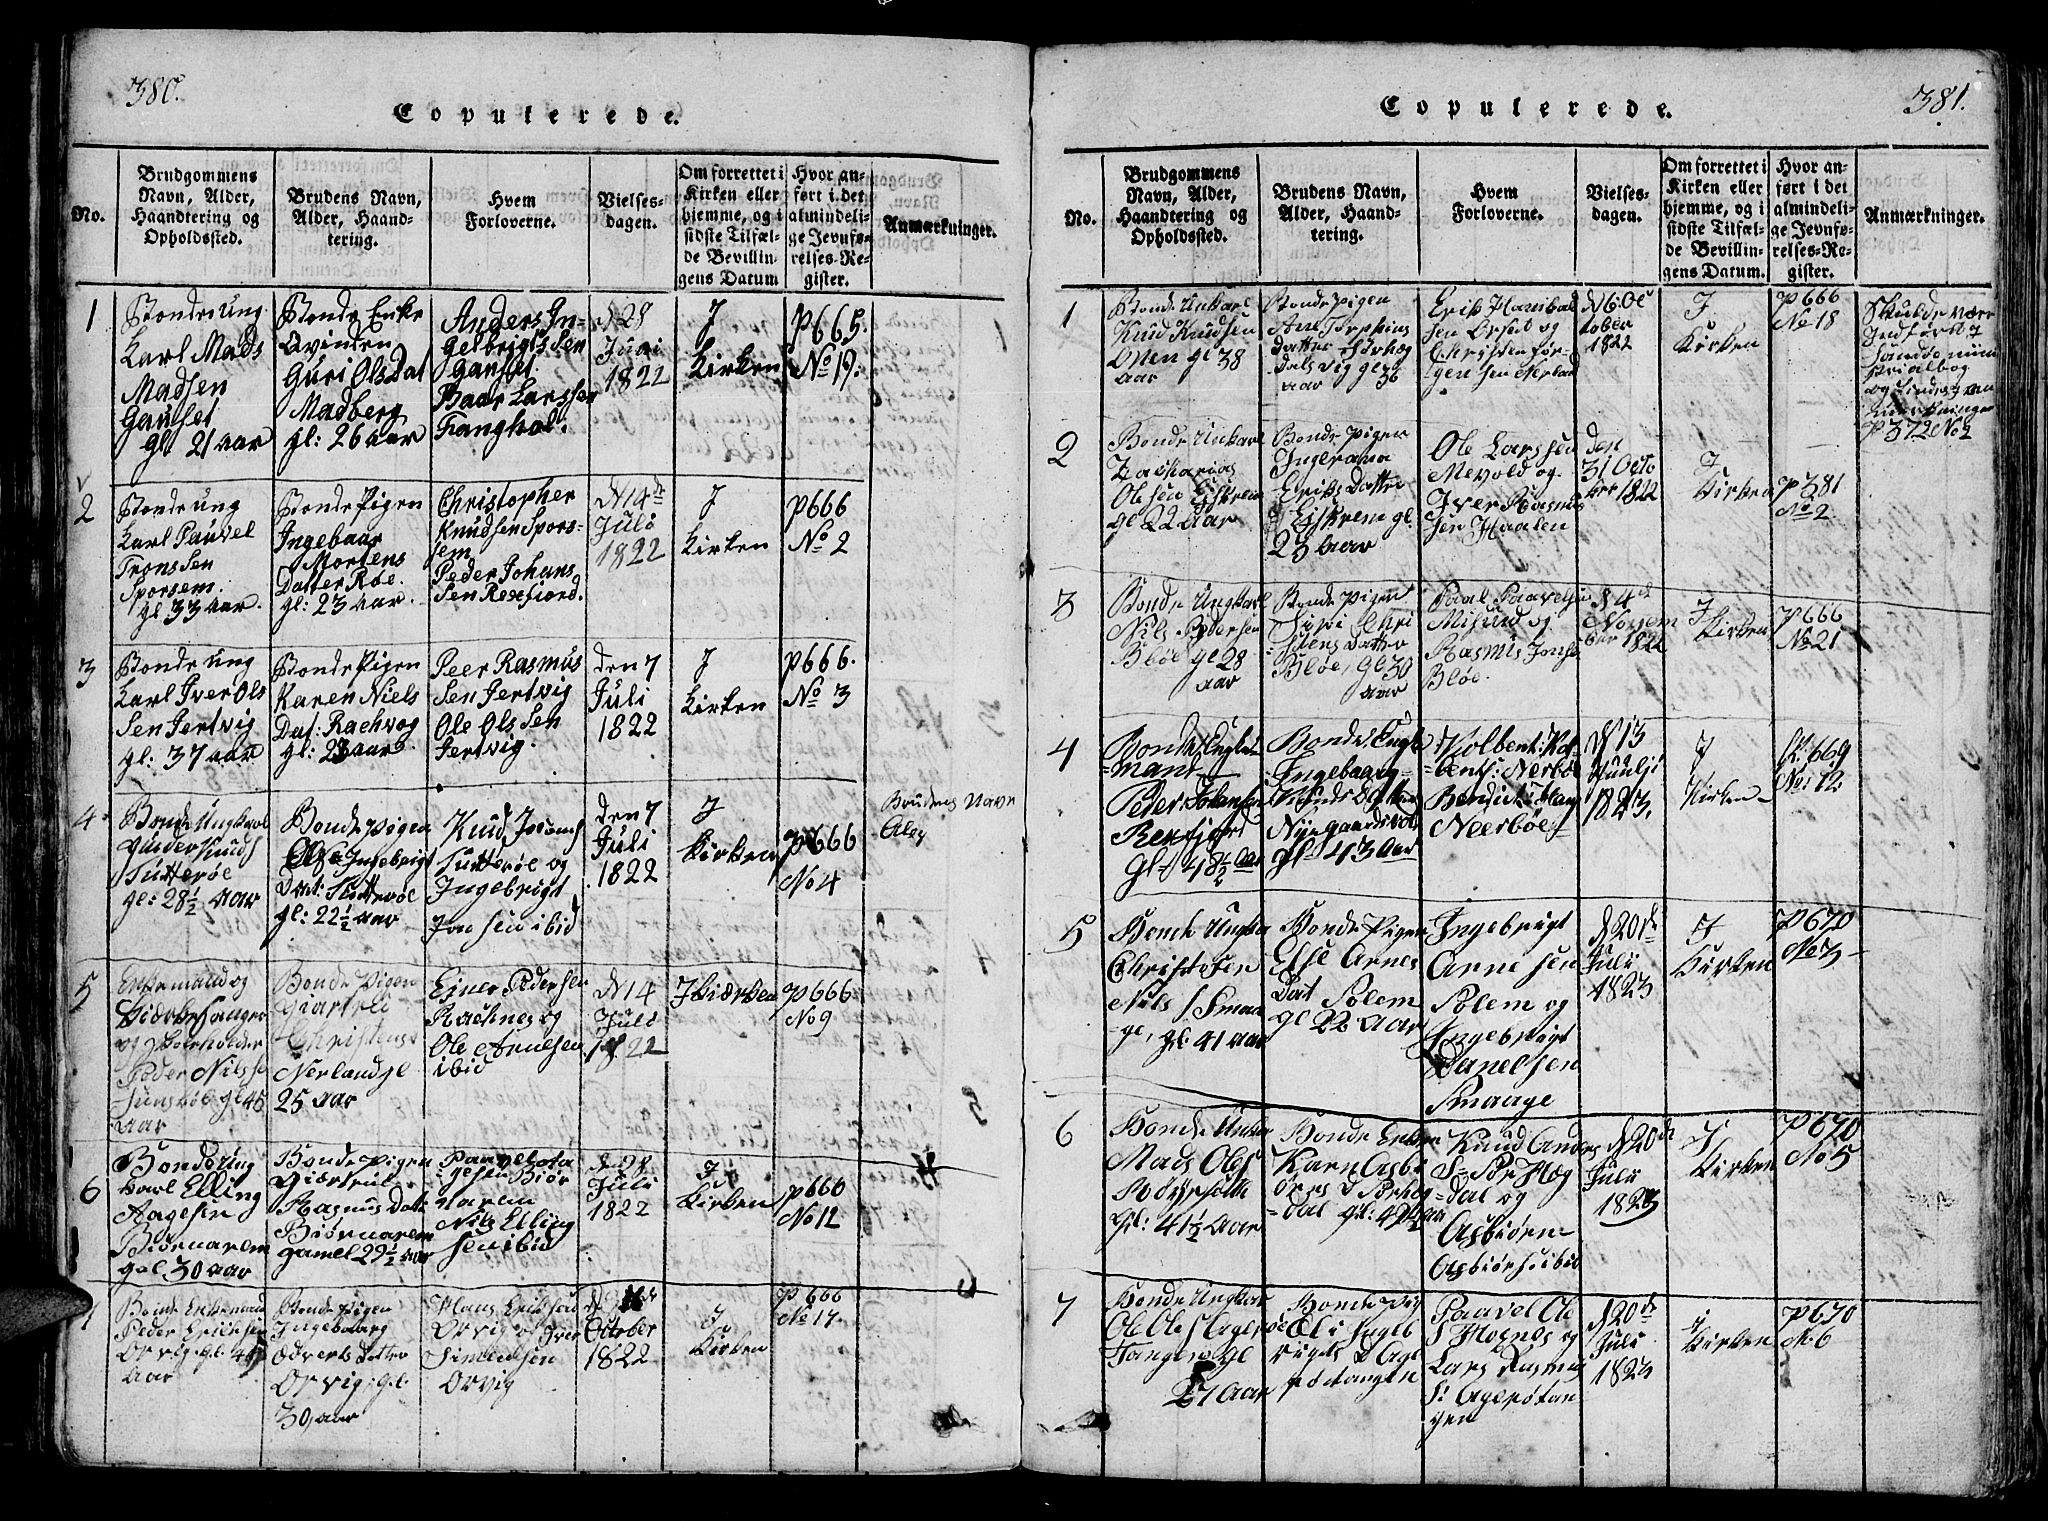 380.
Copulerede.
No.
Brudgommens
Navn, Alder,
Haandtering og
Opholdssted.
Brudens Navn,
Alder, Haand-
tering.
Hvem
Forloverne.
Vielses-
dagen.
Om forrettet i
Kirken eller
hjemme, og i
sidste Tilfæl-
de Bevillin-
gens Datum
Hvor an-
ført i det
almindeli-
ge Jevnfø-
relses-Re-
gister.
Anmærkninger.
1
Bonde ung
karl Mads
Madsen
Gauset
gl: 21 aar
Bonde Enke
Qvinden
Guri Ols Dat
Madberg
gl: 26 aar
Anders In-
gelbrigts Sen
Gauset
Baar Larssen
Fanghol.
d 28
Juni
1822
J
Kirken
P 665.
No 19.
2
Bonde ung
karl Pauvel
Trons Sen
Sporsem.
gl 33 aar.
Bonde Pigen
Ingebaar
Mortens
Datter Røe.
gl: 23 aar
Christopher
Knudsen Spors-
sem
Peder Johans
Sen Rexfiord.
d 14 de
Juli
1822
J
Kirken
P 666
No 2
3
Bonde ung
karl Iver Ols
Sen Jertvig
gl: 37 aar
Bonde Pigen
Karen Niels
Dat: Rachvog
gl: 23 aar
Peer Rasmus
Sen Jertvig
Ole Ols Sen
Jertvig.
den 7
Juli
1822
J
Kirken
P 666.
No 3
4
Bonde Ungkarl
Knuds
Sutterøe
gl: 28½ aar
Bonde Pigen
Ingebrigt
Dat: Sutterøe
gl: 22½ aar
Knud Jonsen
Sutterøe og
Ingebrigt
Jonsen ibid
den 7
Juli
1822
J
Kirken
P 666
No 4
Brudens Navn
5
Enkemand og
Kirkesanger
Peder Nilssen
gl 45
aar
Bonde Pigen
Christens
Nerland gl
25 aar
Ejner Pedersen
Rachnes og
Ole Arnesen
ibid
d 14
Juli
1822
J Kiærken
P 666
No 9
6
Bonde ung
karl Elling
Aagesen
Biørnarem
gl 30 aar
Bonde Pigen
Giertrul
Rasmus Datt
Biørnarem
gamel 29½ aar
Paavel
Biør
narem
Nils Elling
sen ibid
d 28
Juli
1822
J
Kirken
P 666
No 12
7
Bonde Enkemand
Peder Ericksen
Orvig gl:
aar
Bonde Pigen
Ingebaarg
Edverts datter
Orvig gl
30 aar
Hans Eriksen
Orvig og Iver
Simensen
Orvig
October
1822
J
Kirken
P 666
No 17.
381.
Copulerede.
No.
Brudgommens
Navn, Alder,
Haandtering og
Opholdssted.
Brudens Navn,
Alder, Haand-
tering.
Hvem
Forloverne.
Vielses-
dagen.
Om forrettet i
Kirken eller
hjemme, og i
sidste Tilfæl-
de Bevillin-
gens Datum.
Hvor an-
ført i det
almindeli-
ge Jevnfø-
relses-Re-
gister.
Anmærkninger.
1
Bonde Unkarl
Knud Knudsen
gl 38
aar
Bonde Pigen
Ane Torstens
datter
gl 36
aar
Erik Hanibal
sen Orset og
Christen Jør-
gensen Nerland
d 6 Oc
tober
1822
J
Kirken
P 666
No 18
Skulde være
Indført i
P 372 No 2
2
Bonde Unkarl
Zacharias
Olsen Eiskrem
gl 22 aar
Bonde Pigen
Ingerana
Eriks Datter
Eiskrem gl
23 aar
Ole Larssen
Mevold og
Iver Rasmus
sen Haalen
den
31 Octo
ber 1822
J
Kirken
P 381
No 2.
3
Bonde Ungkarl
Nils Pedersen
Bløe gl 28
aar
Bonde Pigen
Siri Chri
stens datter
Bløe, gl 30
aar
Paal Paavelsen
Misund og
Rasmus Jonsen
Bløe.
d 4 de
Novem
ber 1822
J
Kirken
P 666
No 21
4
Bonde
mand
Peder Johansen
Rexfjord
gl 48½ aar
Bonde
Ingebaarg
Knuds Datter
gl 43 aar
Kolbent: Kol
bents: Nerbøe
Neerbøe
d 13
Juli
1823.
J
Kirken
P. 669
No: 12
5
Bonde Ungkar
Christofer
Nils S: Smaa
ge, gl: 41 aar
Bonde Pigen
Else Arnes
Dat Solem
gl 22 aar
Ingebrigt
Arnesen
Solem og
Ingebrigt
Danelsen
Smaage
d 20 de
Juli
1823
J
Kirken
P 670
No 3
6
Bonde Unkar
Mads Ols
gl: 41½ aar
Bonde Enken
Karn Asbi
ørns D Sørhog
dal gl: 49½ aar
Knud Anders
S: Sør Hog
dal og
Asbiørn
Asbiørns: ibid
d 20 de
Juli
1823
J
Kirken
P 670
No 5
7
Bonde Ungkar
Ole Ols Agerøe
Tangen gl
27 aar
Bonde Pig
Eli Ingeb
rigts D Age
røe tangen
Paavel Ole
S: Hognes og
Lars Rasmus
S: Agerøtan
gen
d 20 de
Juli
1823
i
Kirken
P 670
No 6